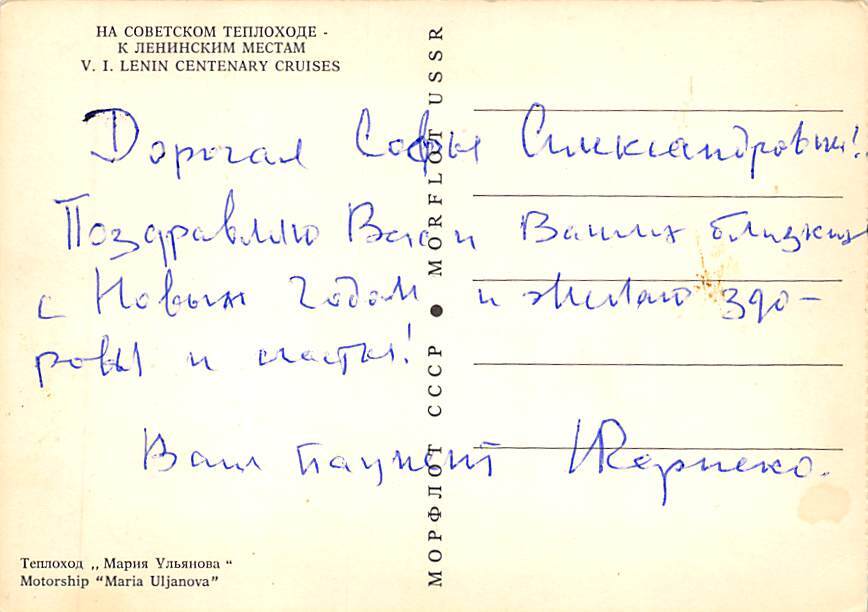 НА СОВЕТСКОМ ТЕПЛОХОДЕ -
К ЛЕНИНСКИМ МЕСТАМ
V. I. LENIN CENTENARY CRUISES
Дорогая Софья Александровна!
Поздравляю Вас и Ваших близких
с Новым Годом и желаю здо-
ровья и счастья!
Ваш пациент
МОРФЛОТ СССР ● MORFLOT USSR
Теплоход „Мария Ульянова“
Motorship “Maria Uljanova”